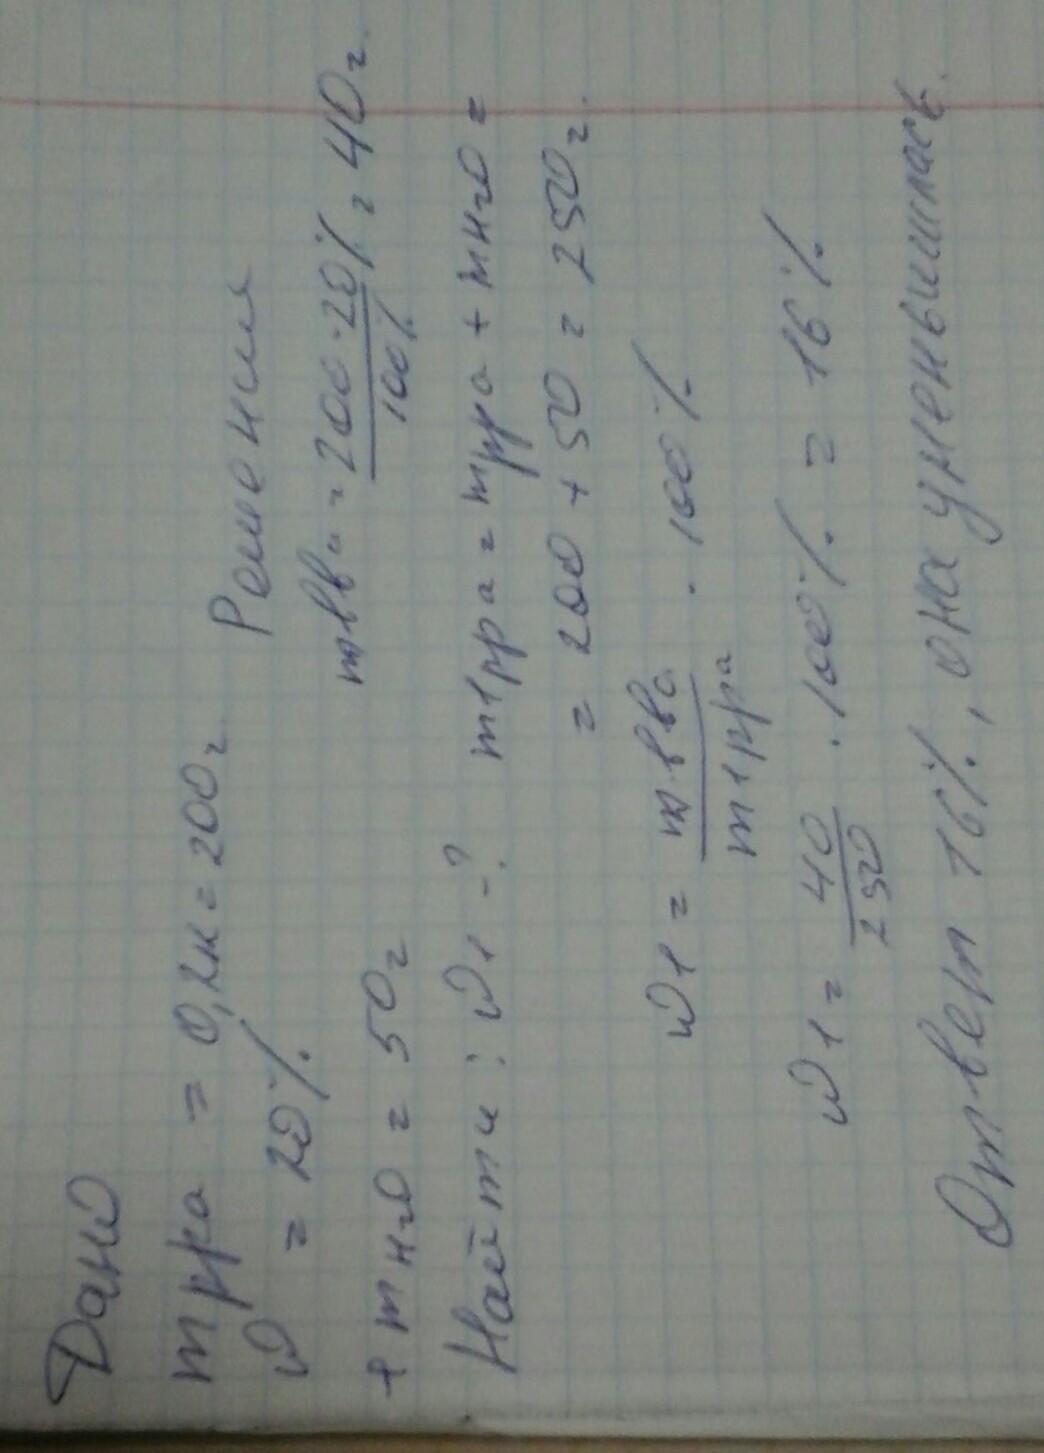 Дано
mрра = 0,2к = 200г.
ω = 20%
+ mH₂O = 50г
Найти: ω1 - ?
Решения
mвва = 200·20% / 100% = 40г.
m1рра = mрра + mH₂O =
= 200 + 50 = 250г.
ω1 = mвва / m1рра · 100%
ω1 = 40 / 250 · 100% = 16%
Ответ 16%, она уменьшилась.